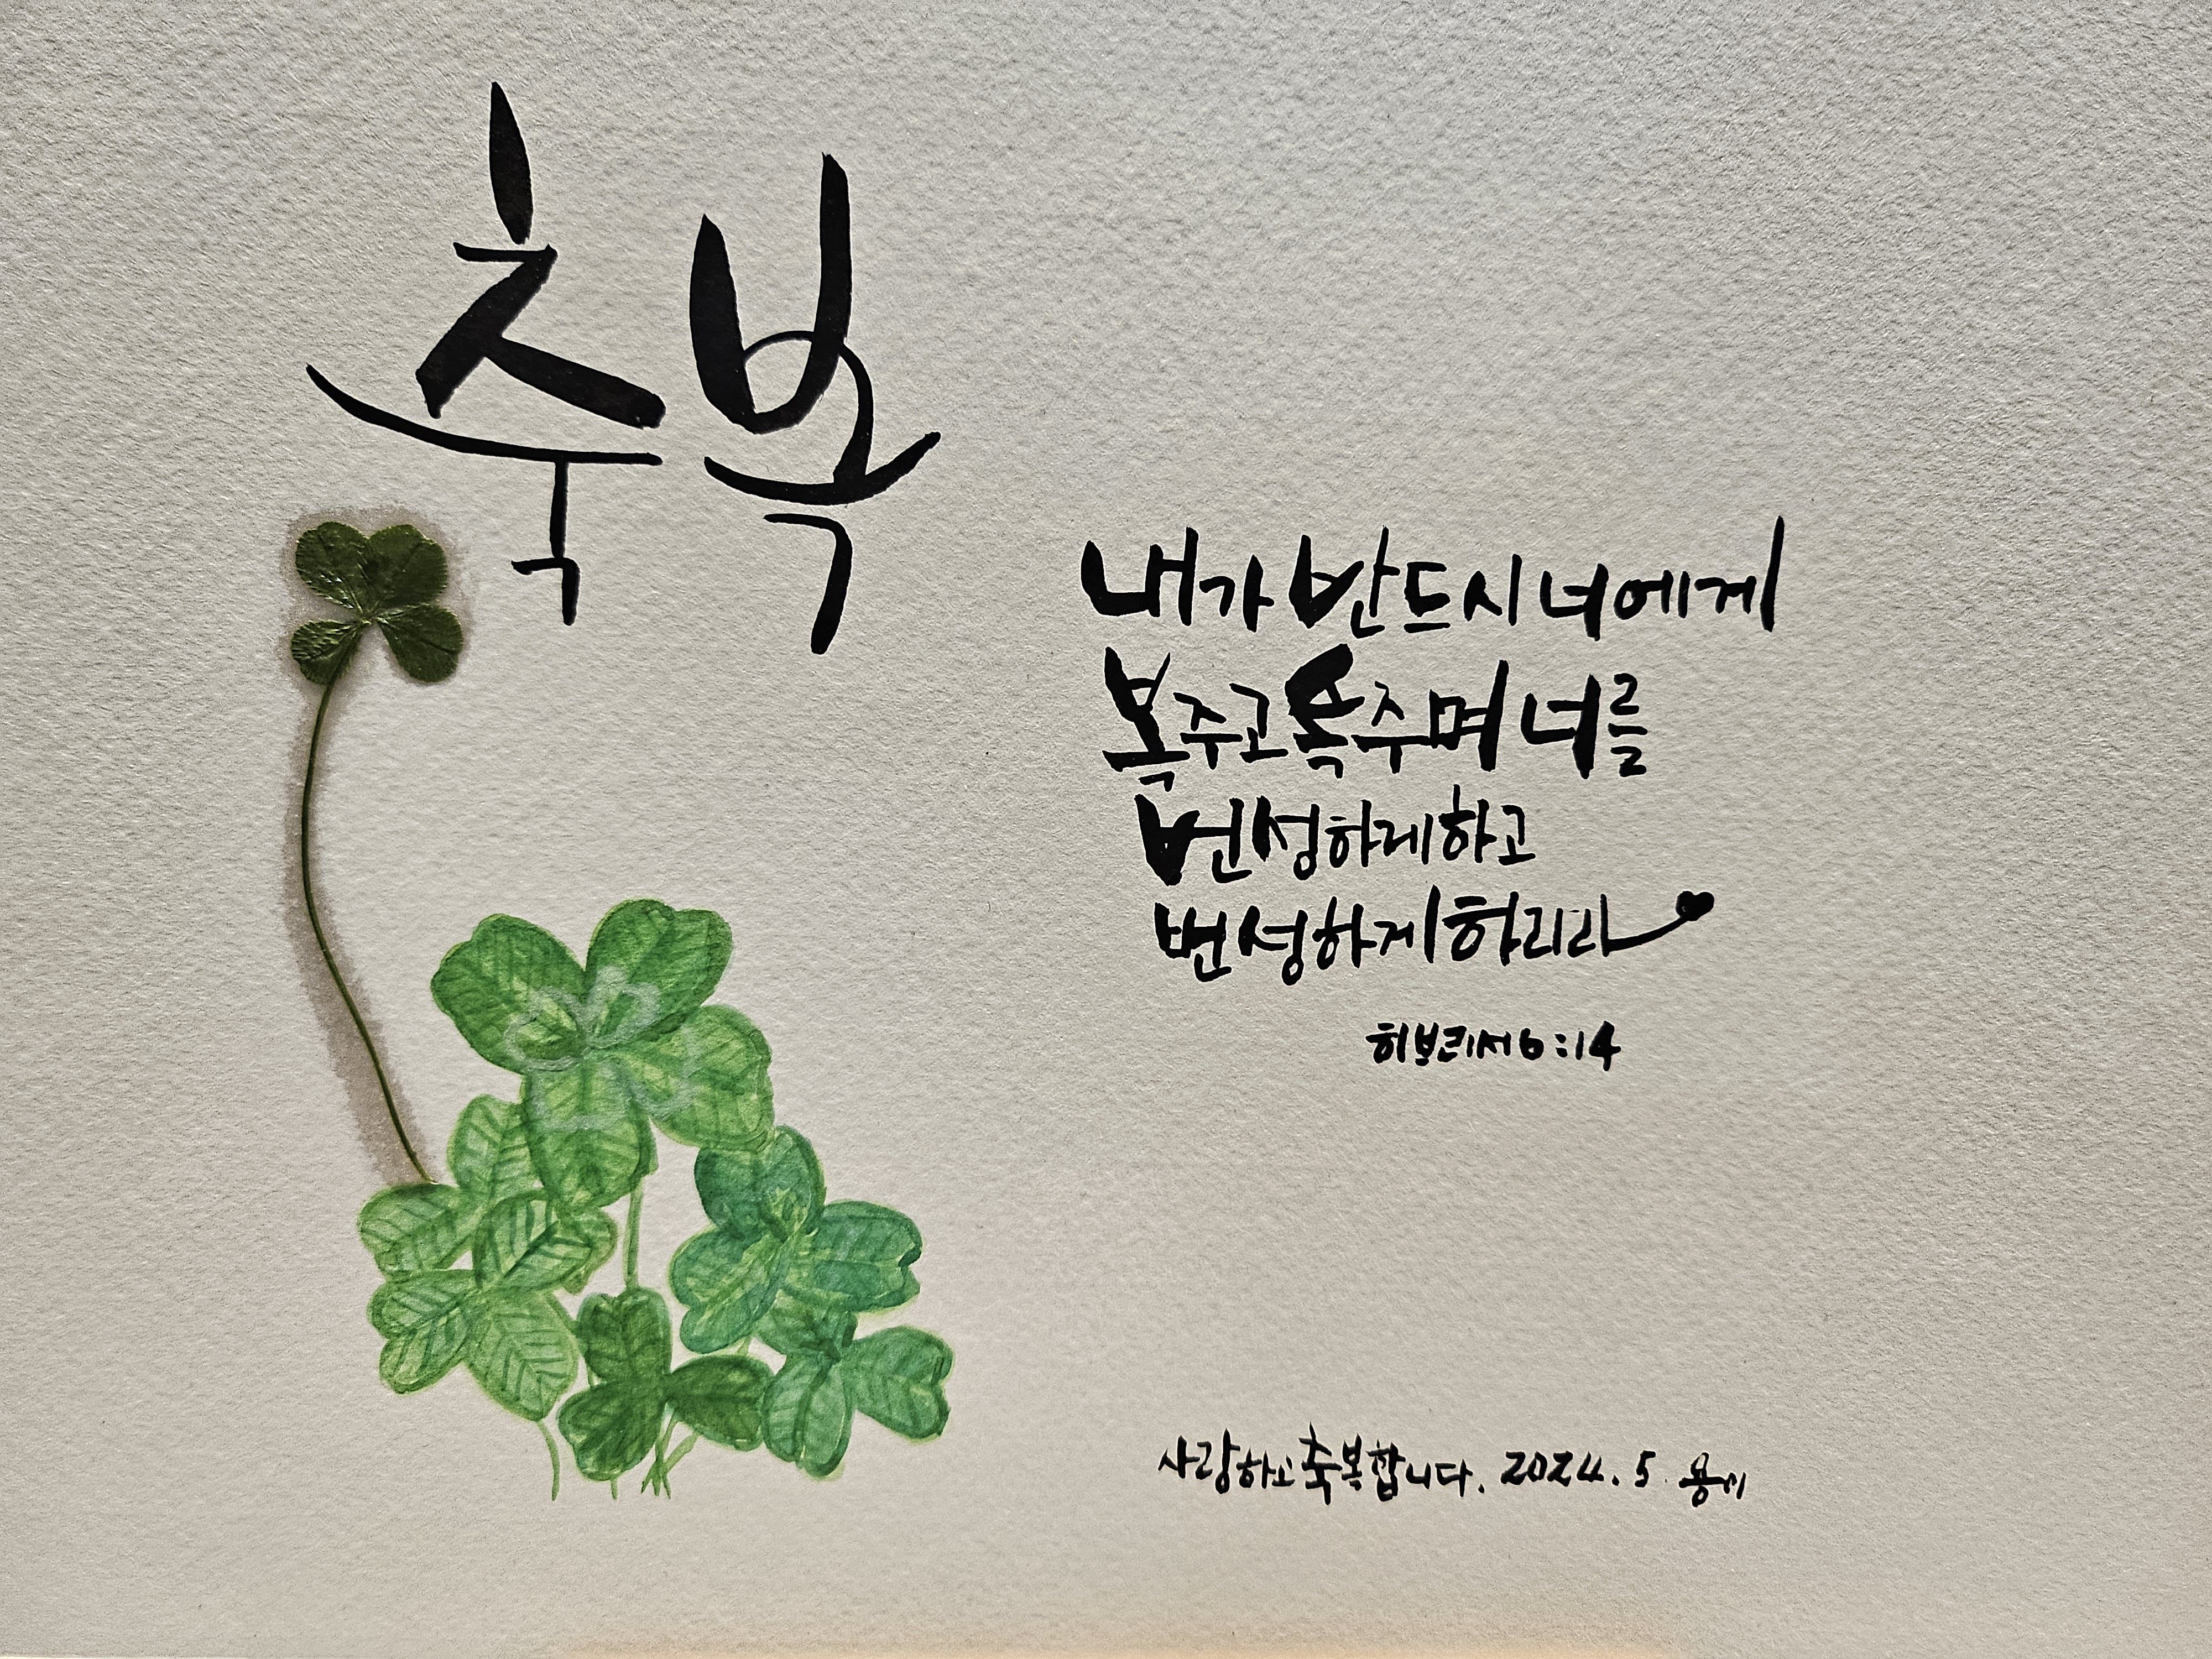 축복
내가 반드시 너에게
복주고 복주며 너를
번성하게하고
번성하게 하리라
히브리서 6:14
사랑하고 축복합니다. 2024. 5.